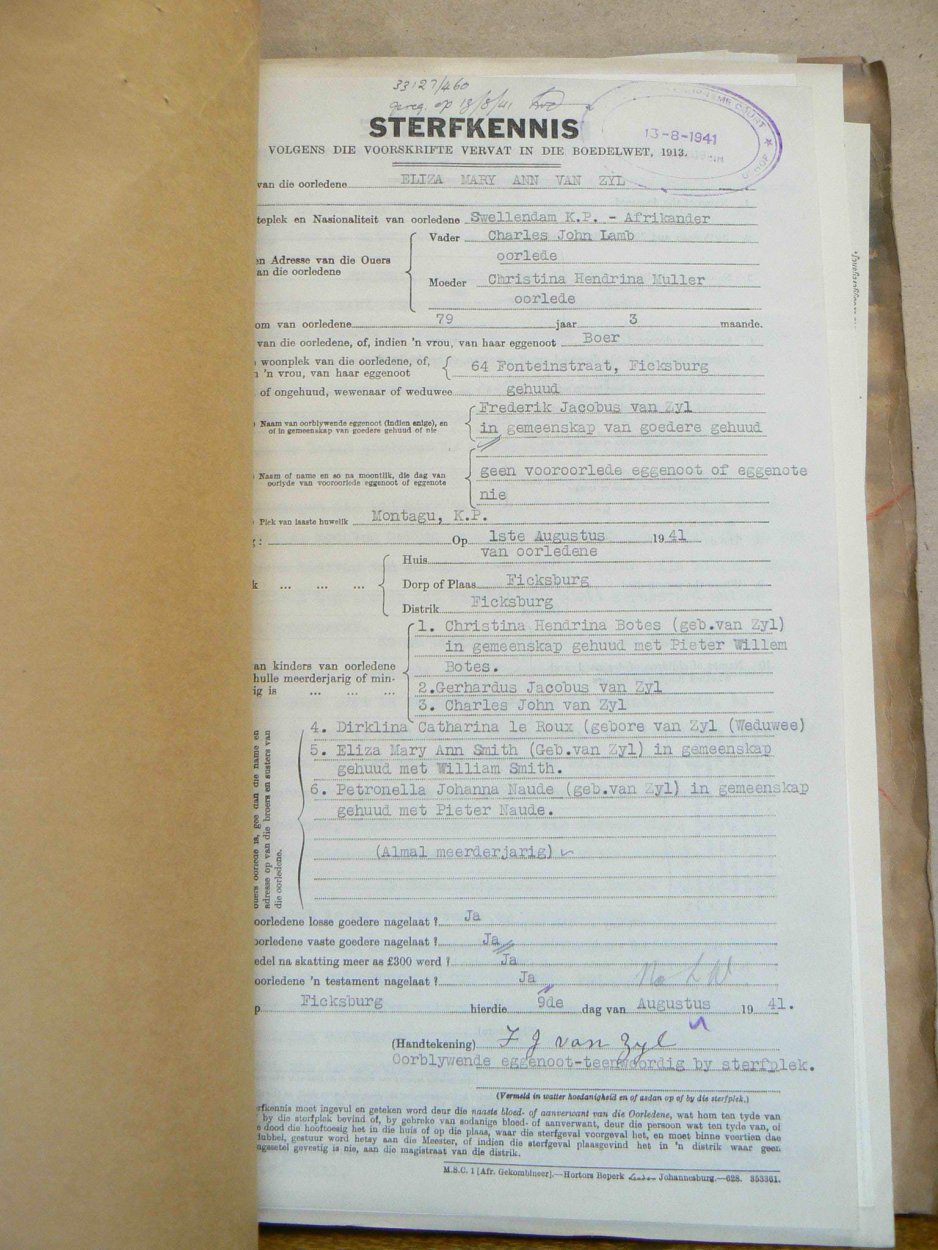 33127/460
gereg. op 13/8/41
STERFKENNIS
13-8-1941
VOLGENS DIE VOORSKRIFTE VERVAT IN DIE BOEDELWET, 1913.
van die oorledene ELIZA MARY ANN VAN ZYL
teplek en Nasionaliteit van oorledene Swellendam K.P. - Afrikander
Vader Charles John Lamb
en Adresse van die Ouers oorlede
an die oorledene
Moeder Christina Hendrina Muller
oorlede
om van oorledene 79 jaar 3 maande.
van die oorledene, of, indien 'n vrou, van haar eggenoot Boer
woonplek van die oorledene, of, 64 Fonteinstraat, Ficksburg
'n vrou, van haar eggenoot
of ongehuud, wewenaar of weduwee gehuud
Frederik Jacobus van Zyl
Naam van oorblywende eggenoot (indien enige), en
of in gemeenskap van goedere gehuud of nie in gemeenskap van goedere gehuud
Naam of name en so na moontlik, die dag van geen vooroorlede eggenoot of eggenote
oorlyde van vooroorlede eggenoot of eggenote
nie
Plek van laaste huwelik Montagu, K.P.
Op 1ste Augustus 1941
Huis van oorledene
k ... ... ... Dorp of Plaas Ficksburg
Distrik Ficksburg
1. Christina Hendrina Botes (geb.van Zyl)
in gemeenskap gehuud met Pieter Willem
an kinders van oorledene Botes.
hulle meerderjarig of min-
ig is ... ... ... 2.Gerhardus Jacobus van Zyl
3. Charles John van Zyl
4. Dirklina Catharina le Roux (gebore van Zyl (Weduwee)
5. Eliza Mary Ann Smith (Geb.van Zyl) in gemeenskap
gehuud met William Smith.
6. Petronella Johanna Naude (geb.van Zyl) in gemeenskap
gehuud met Pieter Naude.
ouers oorlede is, gee dan die name en
adresse op van die broers en susters van
die oorledene.
(Almal meerderjarig)
oorledene losse goedere nagelaat ? Ja
oorledene vaste goedere nagelaat ? Ja
edel na skatting meer as £300 werd ? Ja
oorledene 'n testament nagelaat ? Ja
p Ficksburg hierdie 9de dag van Augustus 1941.
(Handtekening) F J van Zyl
Oorblywende eggenoot-teenwoordig by sterfplek.
(Vermeld in watter hoedanigheid en of asdan op of by die sterfplek.)
erfkennis moet ingevul en geteken word deur die naaste bloed- of aanverwant van die Oorledene, wat hom ten tyde van
by die sterfplek bevind of, by gebreke van sodanige bloed- of aanverwant, deur die persoon wat ten tyde van, of
dood die hooftoesig het in die huis of op die plaas, waar die sterfgeval voorgeval het, en moet binne veertien dae
dubbel, gestuur word hetsy aan die Meester, of indien die sterfgeval plaasgevind het in 'n distrik waar geen
gesetel gevestig is nie, aan die magistraat van die distrik.
M.S.C. 1 [Afr. Gekombineer].—Hortors Beperk Johannesburg.—628. 353361.